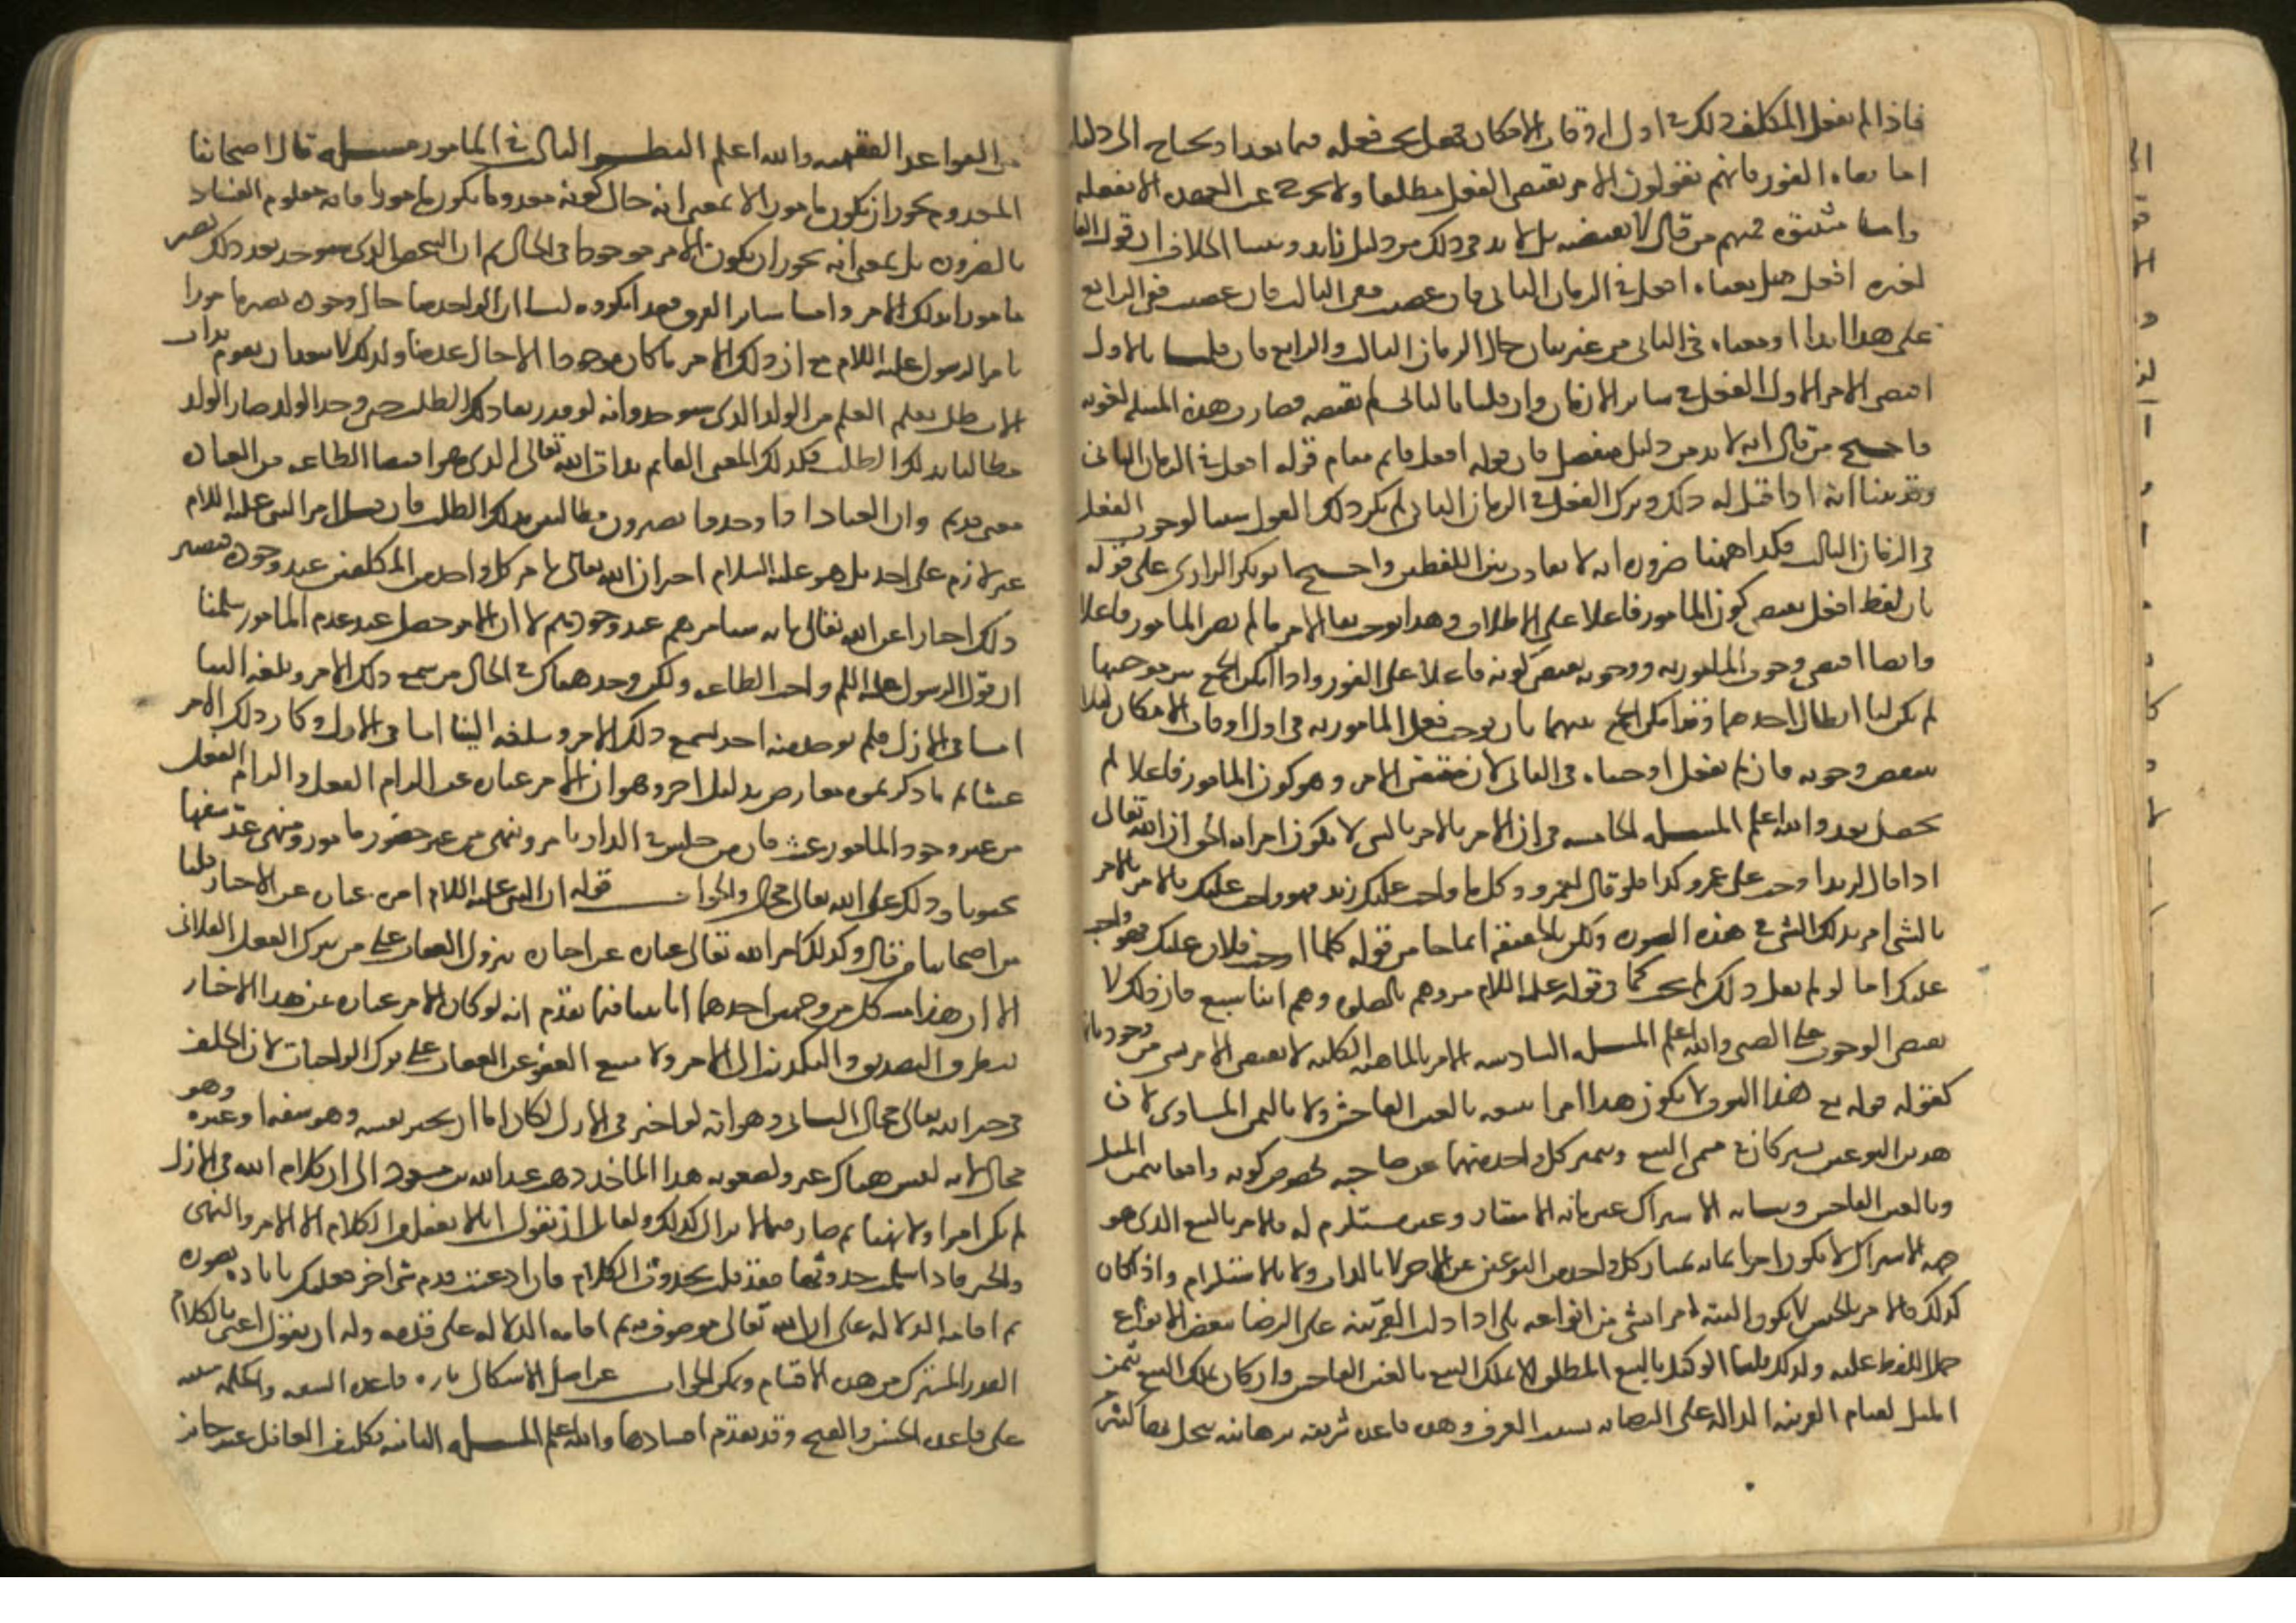 فاذا لم يفعل المكلف ذلك في اول اوقات الامكان فهل يجب فعله فيما بعد او يحتاج الى دليل
اما نفاة الفور فانهم يقولون الامر يقتضى الفعل مطلقا ولا يخرج عن العهدة الا بفعله
واما مثبتوه فمنهم من قال لا يقتضيه بل لا بد في ذلك من دليل زايد ومنشا الخلاف ان قول القايل
لغيره افعل هل معناه افعل في الزمان الثاني فان عصيت ففى الثالث فان عصيت ففى الرابع
على هذا ابدا او معناه في الثاني من غير بيان حال الزمان الثالث والرابع فان قلنا بالاول
اقتضى الامر الاول الفعل في ساير الازمان وان قلنا بالثانى لم يقتضه فصارت هذه المسلة لغوية
واحتج من قال انه لا بد من دليل منفصل فان قوله افعل قايم مقام قوله افعل في الزمان الثاني
وقد بينا انه اذا قيل له ذلك وترك الفعل في الزمان الثاني لم يكن ذلك القول سببا لوجوب الفعل
في الزمان الثالث فكذا ههنا ضرورة انه لا تفاوت بين اللفظين واحتج ابو بكر الرازى على قوله
بان لفظ افعل يقتضى كون المامور فاعلا على الاطلاق وهذا يوجب بقا الامر ما لم يصر المامور فاعلا
وايضا اقتضى وجوب المامور به ووجوبه يقتضى كونه فاعلا على الفور واذا امكن الجمع بين موجبها
لم يكن لنا ابطال احدهما وقد امكن الجمع بينهما بان يوجب فعل المامور به في اول اوقات الامكان ليلا
ينتقض وجوبه فان لم يفعل اوجبناه في الثانى لان مقتضى الامر وهو كون المامور فاعلا لم
يحصل بعد والله اعلم المسلة الخامسة في ان الامر بالامر بالشى لا يكون امرا به الحق ان الله تعالى
اذا قال لزيد اوجب على عمرو كذا فلو قال لعمرو وكل ما اوجب عليك زيد فهو واجب عليك فالامر بالامر
بالشى امر بذلك الشى في هذه الصورة ولكن بالحقيقة انما جا من قوله كلما اوجب فلان عليك فهو واجب
عليك اما لو لم يقل ذلك لم يجب كما في قوله عليه السلام مروهم بالصلوة وهم ابنا سبع فان ذلك لا
يقتضى الوجوب على الصبى والله اعلم المسلة السادسة الامر بالماهية الكلية لا يقتضى الامر بشى من جزئياتها
كقوله قوله بع هذا الثوب لا يكون هذا امرا ببيعه بالغبن الفاحش ولا بالثمن المساوى لان
هذين النوعين يشتركان في مسمى البيع ويتميز كل واحد منهما عن صاحبه بخصوص كونه واقعا بثمن المثل
وبالغبن الفاحش وما به الاشتراك غير ما به الامتياز وغير مستلزم له فالامر بالبيع الذى هو
جهة الاشتراك لا يكون امرا بما به يمتاز كل واحد من النوعين عن الاخر لا بالذات ولا بالاستلزام واذا كان
كذلك فالامر بالجنس لا يكون البتة امرا بشى من انواعه بلى اذا دلت القرينة على الرضا ببعض الانواع
حمل اللفظ عليه ولذلك قلنا الوكيل بالبيع المطلق لا يملك البيع بالغبن الفاحش وان كان يملك البيع بثمن
المثل لقيام القرينة الدالة على الرضا به بسبب العرف وهذه قاعدة شريفة برهانية ينحل بها كثير
من القواعد الفقهية والله اعلم النظر الثالث في المامور مسلة قال اصحابنا
المعدوم يجوز ان يكون مامورا لا بمعنى انه حال كونه معدوما يكون مامورا فانه معلوم الفساد
بالضرورة بل بمعنى انه يجوز ان يكون الامر موجودا في الحال ثم ان الشخص الذى سيوجد بعد ذلك يصير
مامورا بذلك الامر واما ساير الفرق فقد انكروه لنا ان الواحد منا حال وجوده يصير مامورا
بامر الرسول عليه السلام مع ان ذلك الامر ما كان موجودا الا حال عدمنا ولذلك لا يبعد ان يقوم بذات
الاب طلب تعلم العلم من الولد الذى سيوجد وانه لو قدر بقا ذلك الطلب حتى وجد الولد صار الولد
مطالبا بذلك الطلب فكذلك المعنى القايم بذات الله تعالى الذى هو اقتضا الطاعة من العباد
معنى قديم وان العباد اذا وجدوا يصيرون مطالبين بذلك الطلب فان قيل امر النبى عليه السلام
غير لازم على احد بل هو عليه السلام اخبر ان الله تعالى يامر كل واحد من المكلفين عند وجوده فيصير
ذلك اخبارا عن الله تعالى بانه سيامرهم عند وجودهم لا ان الامر حصل عند عدم المامور سلمنا
ان قول الرسول عليه السلام واجب الطاعة ولكن وجد هناك في الحال من سمع ذلك الامر وبلغه الينا
اما في الازل فلم يوجد منه احد يسمع ذلك الامر ويبلغه الينا اما في الاول وكان ذلك الامر
عبثا ثم ما ذكرتموه معارض بدليل اخر وهو ان الامر عبارة عن الزام الفعل والزام الفعل
من غير وجود المامور عبث فان من جلس في الدار يامر وينهى من غير حضور مامور ومنهى عد سفيها
مجنونا وذلك على الله تعالى محال والجواب قوله ان النبى عليه السلام امره عبارة عن الاخبار قلنا
من اصحابنا من قال وكذلك امر الله تعالى عبارة عن اخباره بنزول العقاب على من يترك الفعل الفلانى
الا ان هذا مشكل من وجهين احدهما انا بينا فيما تقدم انه لو كان الامر عبارة عن هذا الاخبار
لتطرق التصديق والتكذيب الى الامر ولامتنع العفو عن العقاب على ترك الواجبات لان الخلف
في خبر الله تعالى محال الثانى وهو انه لو اخبر في الازل لكان اما ان يخبر نفسه وهو سفه او غيره وهو
محال لانه ليس هناك غير ولصعوبة هذا الماخذ ذهب عبد الله بن سعيد الى ان كلام الله في الازل
لم يكن امرا ولا نهيا ثم صار فيما لا يزال كذلك ولقايل ان يقول انا لا نعقل من الكلام الا الامر والنهى
والخبر فاذا سلمت حدوثها فقد قلت بحدوث الكلام فان ادعيت قدم شى اخر فعليك بافادة تصوره
ثم اقامة الدلالة على ان الله تعالى موصوف به ثم اقامة الدلالة على قدمه وله ان يقول اعنى بالكلام
القدر المشترك من هذه الاقسام ويمكن الجواب عن اصل الاشكال بان قاعدة السفه والحكمة مبنية
على قاعدة الحسن والقبح وقد تقدم افسادها والله اعلم المسلة الثانية تكليف الغافل غير جايز